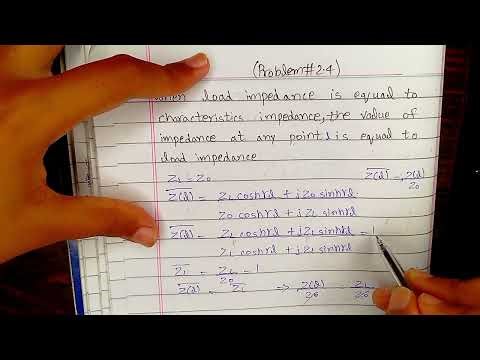 (Problem#2.4)
When load impedance is equal to
characteristics impedance, the value of
impedance at any point l is equal to
load impedance
Z_L = Z_0 Z̅(d) = Z(d)/Z_0
Z̅(d) = Z_L coshγd + jZ_0 sinhγd
Z_0 coshγd + jZ_L sinhγd
Z̅(d) = Z_L coshγd + jZ_L sinhγd = 1
Z_L coshγd + jZ_L sinhγd
Z̅_L = Z_L/Z_0 = 1
Z̅(d) = Z̅_L ⇒ Z(d)/Z_0 = Z_L/Z_0